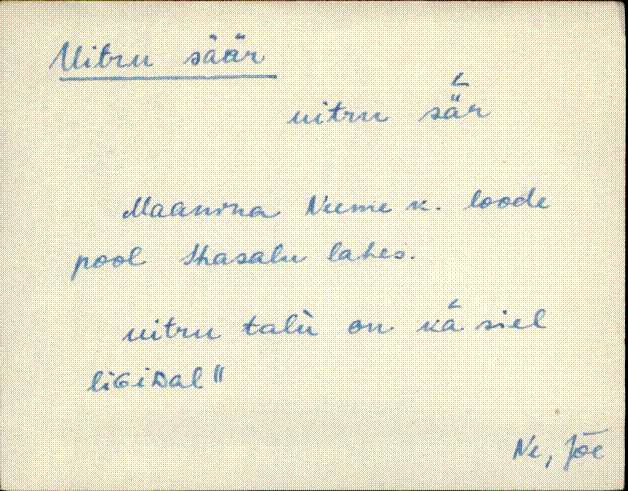 Uitru säär
uitru sä̀r
Maanina Neeme k. loode
pool Ihasalu lahes.
uitru talù on kä̀ siel
liGiDal"
Ne, Jõe